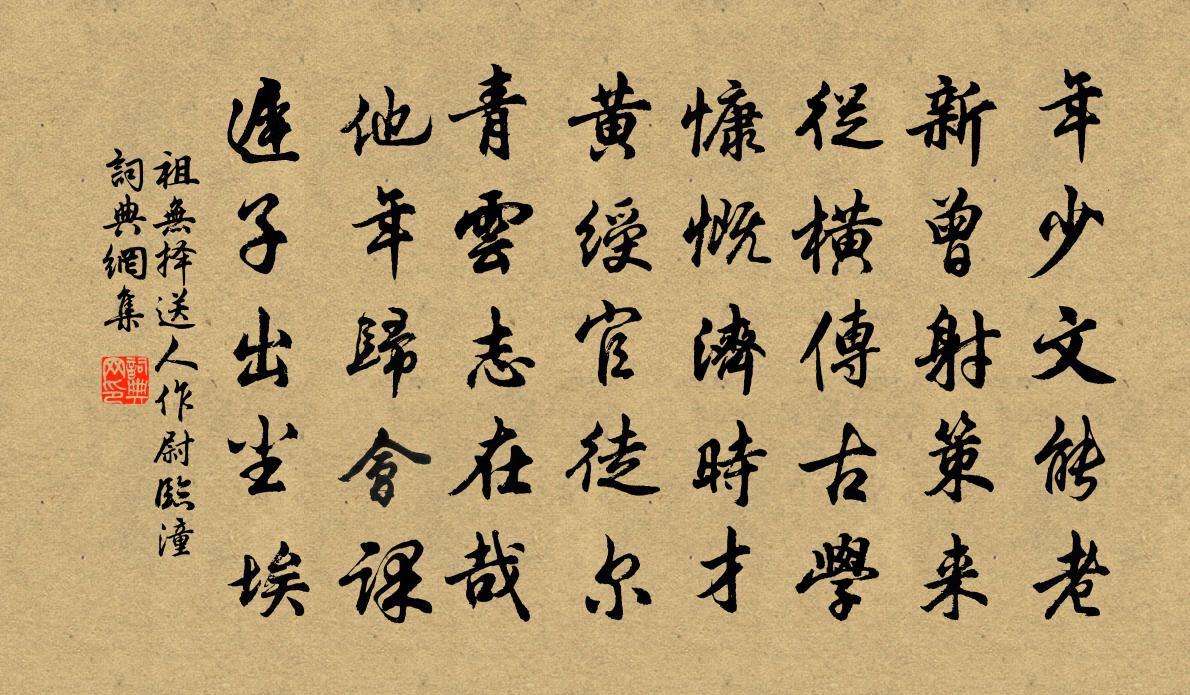 年少文能老
新曾射策来
從橫傳古學
慷慨濟時才
黄綬官徒尔
青雲志在哉
他年歸會課
遲子出尘埃
祖無择送人作尉臨潼
詞典網集
詞典网印